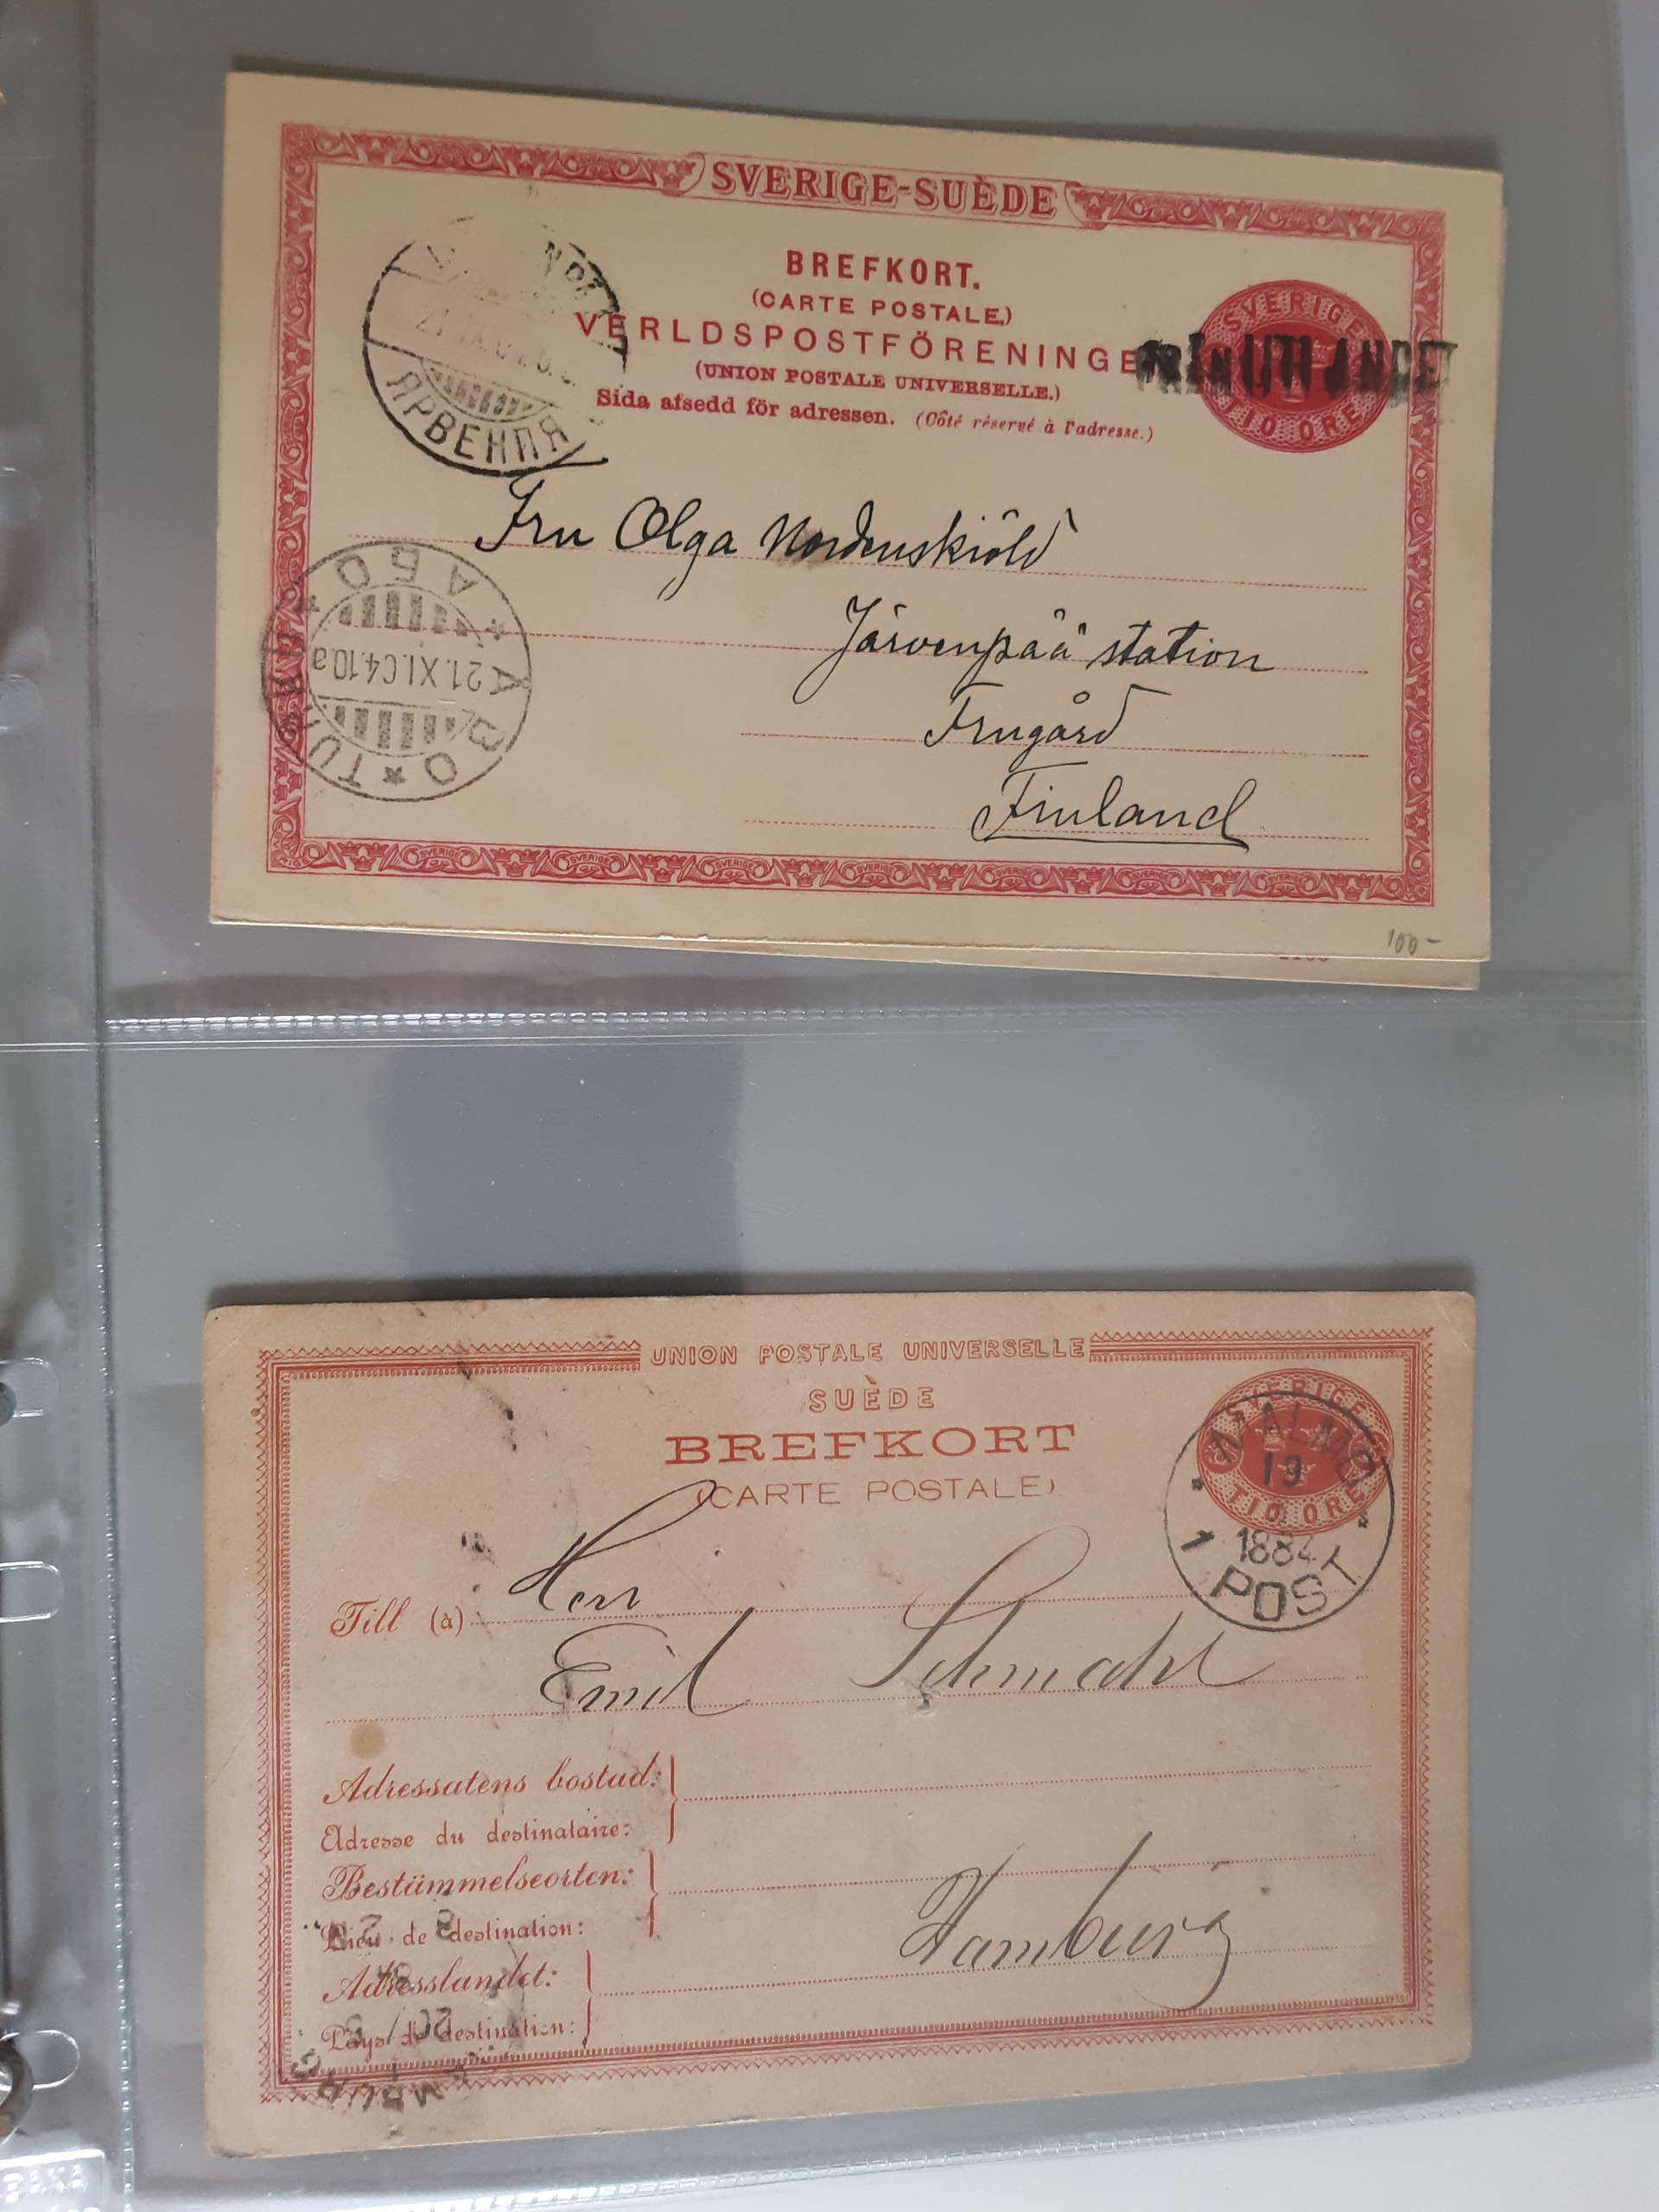 SVERIGE-SUÈDE
BREFKORT.
(CARTE POSTALE.)
VERLDSPOSTFÖRENINGE
(UNION POSTALE UNIVERSELLE.)
Sida afsedd för adressen. (Côté réservé à l'adresse.)
SVERIGE
TIO ÖRE
FRÅN UTLANDET
ЯРВЕНПЯ
Fru Olga Nordenskiöld
Järvenpää station
Frugård
Finland
ÅBO * TURKU * АБО
21.XI.04.10a
100-
UNION POSTALE UNIVERSELLE
SUÈDE
BREFKORT
(CARTE POSTALE)
SVERIGE
TIO ÖRE
19
1884
1 POST
Till (à) Herr
Emil Schmahl
Adressatens bostad:
Adresse du destinataire:
Bestämmelseorten:
Lieu de destination:
Hamburg
Adresslandet:
Pays de destination: